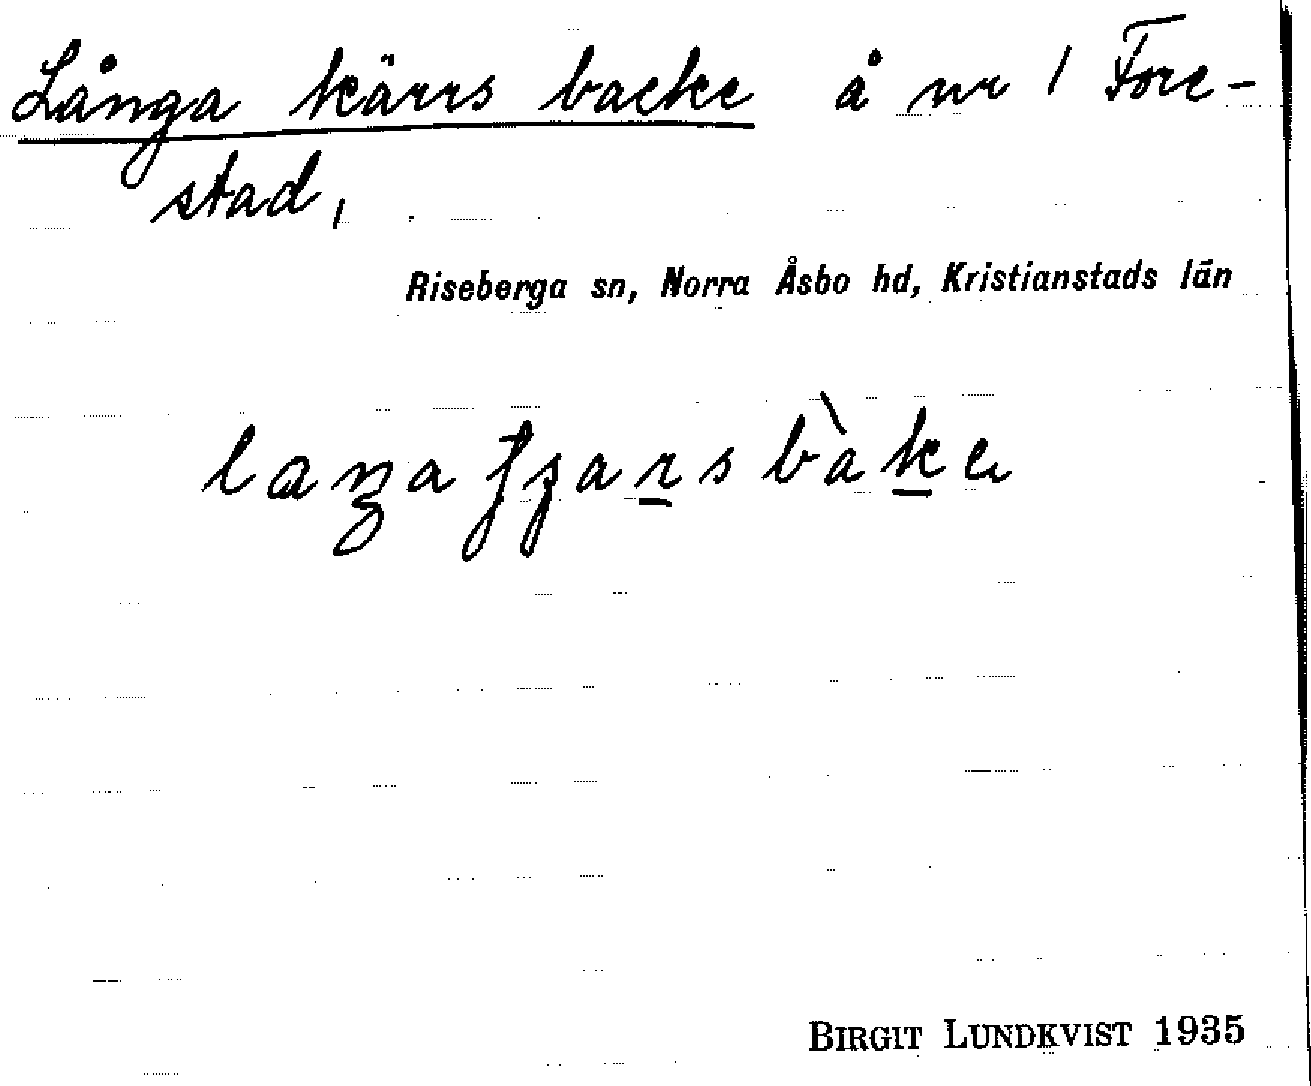 Långa kärrs backe å nr 1 Fore-
stad,
Riseberga sn, Norra Åsbo hd, Kristianstads län
BIRGIT LUNDKVIST 1935